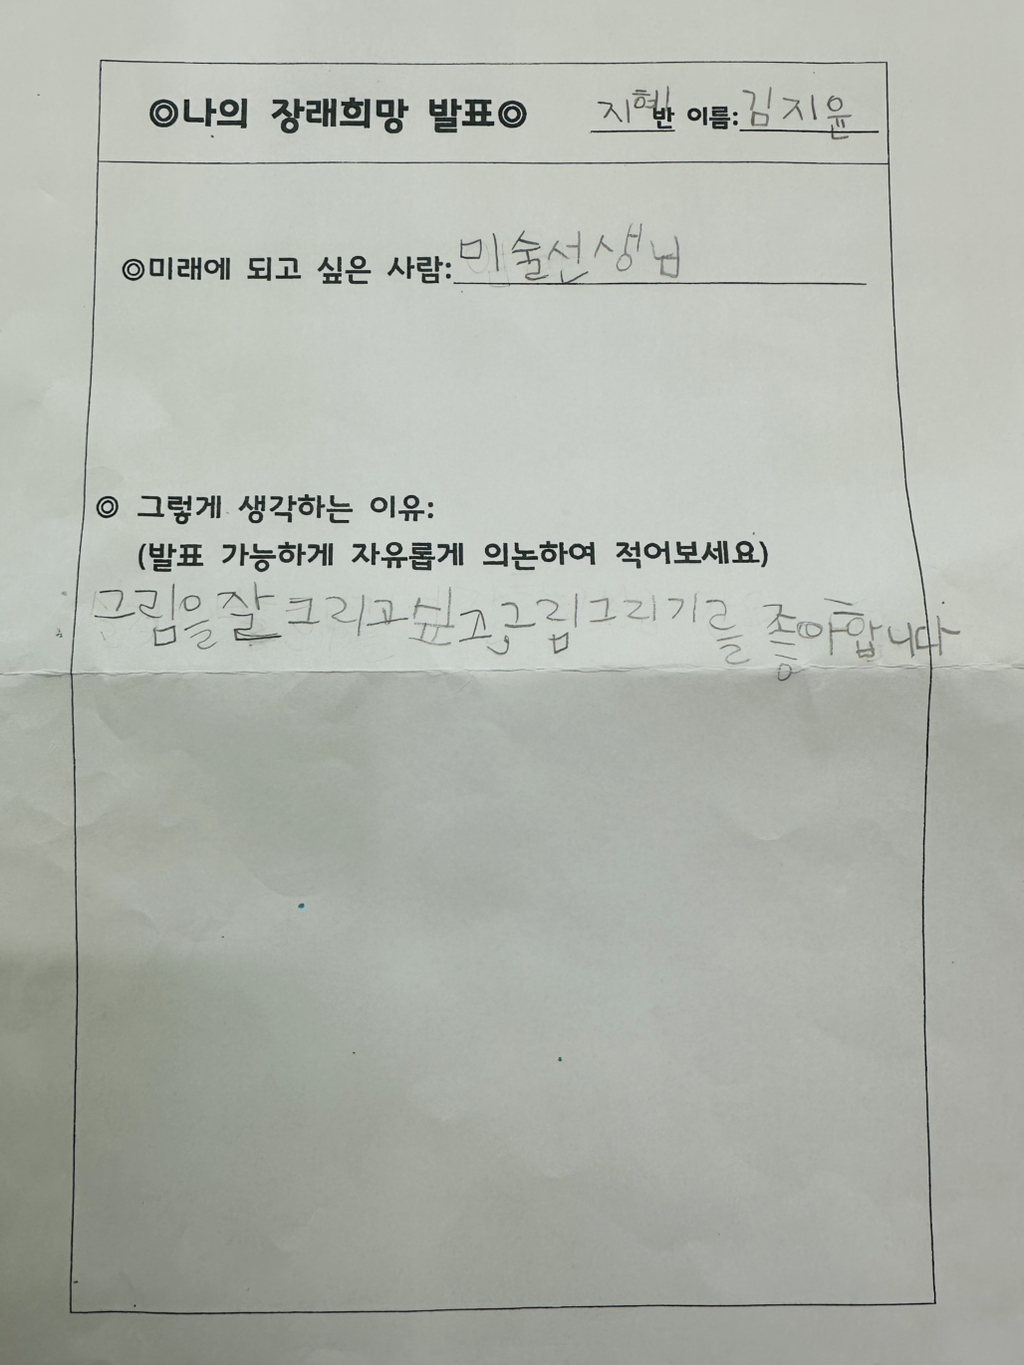 ◎나의 장래희망 발표◎ 지혜반 이름:김지윤
◎미래에 되고 싶은 사람:미술선생님
◎ 그렇게 생각하는 이유:
(발표 가능하게 자유롭게 의논하여 적어보세요)
그림을잘크리고싶고,그림그리기를 좋아합니다